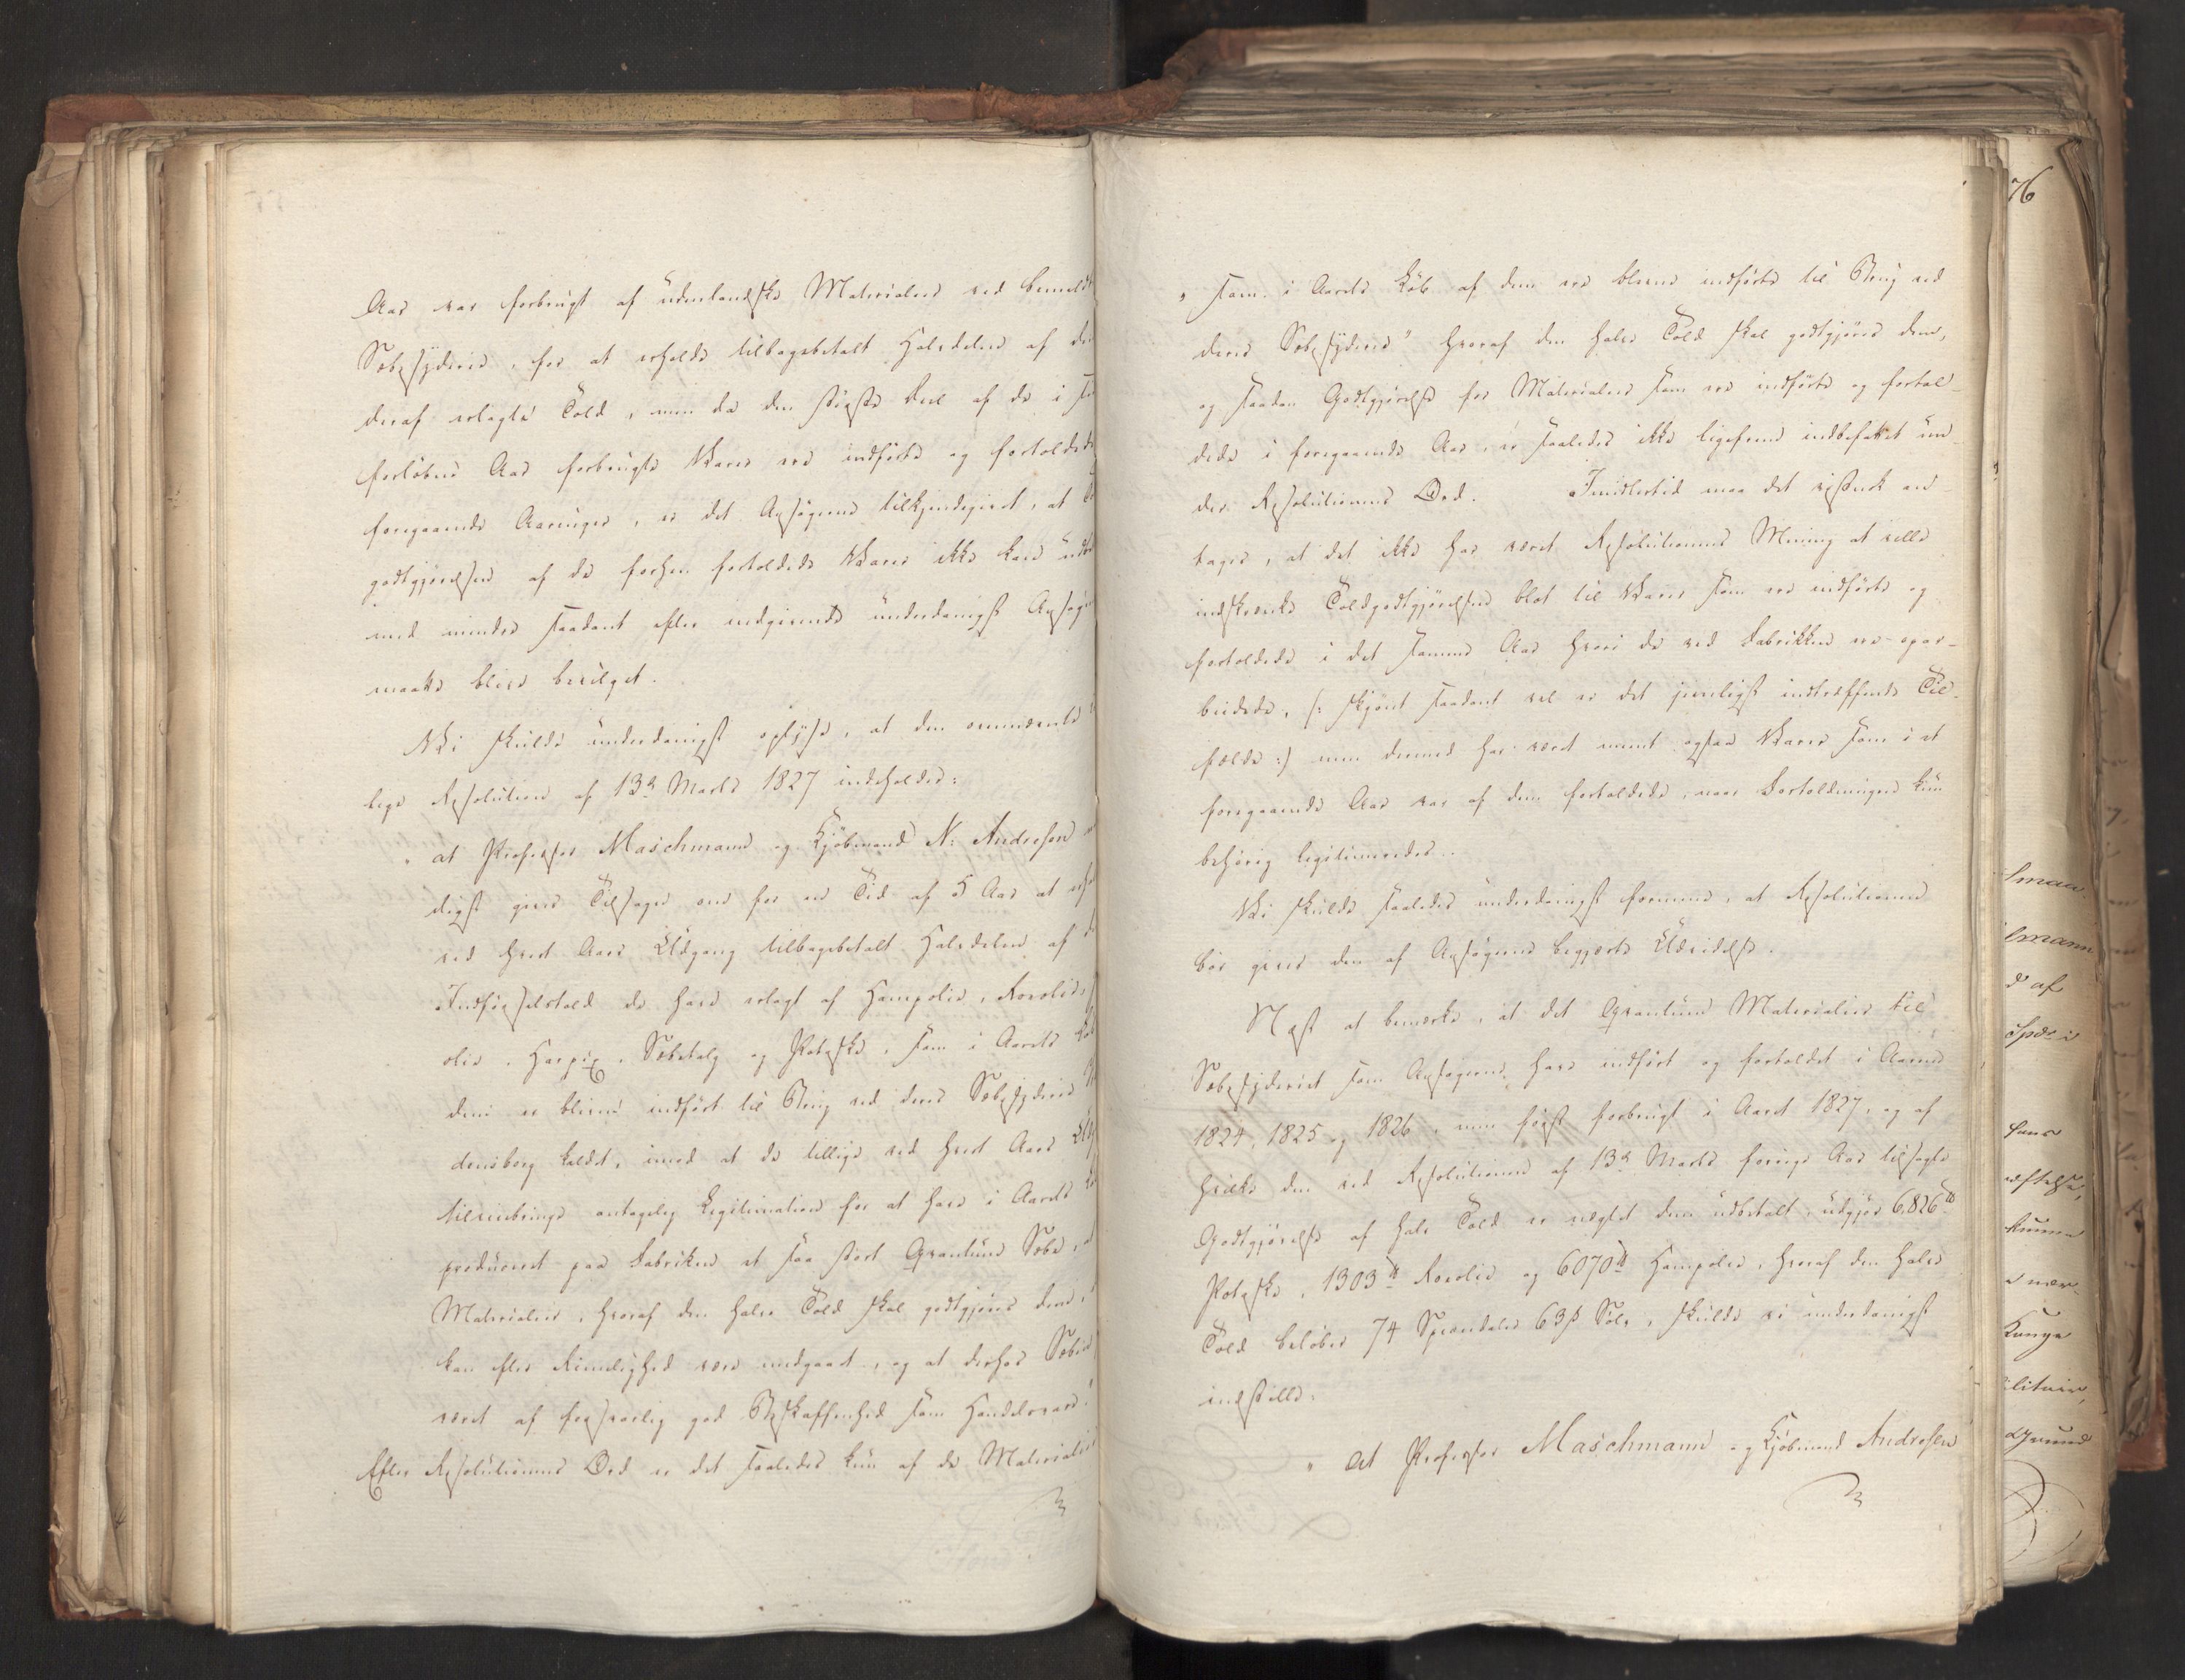 Aar var forbrugt af udenlandske Materialier ved bemeldte
Sæbesyderie, for at erholde tilbagebetalt Halvdelen af den
deraf erlagte Told, men da den største Deel af de i
forløbne Aar forbrugte Varer ere indførte og fortoldede
foregaaende Aaringer, er det Ansøgerne tilkjendegivet, at
godtgjørelsen af de forhen fortoldede Varer ikke kan
med mindre saadant efter nedgivende underdanigst
maatte blive bevilget.
Vi skulde underdanigst oplyse, at den ovennævnte
lige Resolution af 13de Marts 1827 indeholder:
" at Professor Maschmann og Kjöbmand N: Andresen
digst gives Tilsagn om for en Tid af 5 Aar at
ved hvert Aars Udgang tilbagebetalt Halvdelen af
Indførselstold de have erlagt af Hampolie, Roeolie,
olie, Harpix, Sæbetalg og Potaske, som i Aarets
dem er bleven indført til Brug ved deres Sæbesyderie
densborg kaldet, imod at de tillige ved hvert Aars
tilveiebringe antagelig Legitimation for at have i Aarets
produceret paa Fabriken et saa stort Qvantum Sæbe,
Materialier, hvoraf den halve Told skal godtgjøres dem,
kan efter Rimelighed være medgaaet, og at derhos Sæben
været af forsvarlig god Beskaffenhed som Handelsvare."
Efter Resolutionens Ord er det saaledes kun af de Materialier
" som i Aarets Løb af dem ere blevne indførte til Brug ved
deres Sæbesyderie" hvoraf den halve Told skal godtgjøres dem,
og saadan Godtgjørelse for Materialier som ere indførte og fortol-
dede i foregaaende Aar, er saaledes ikke ligefrem indbefattet un-
der Resolutionens Ord. Imidlertid maa det vistnok an-
tages, at det ikke har været Resolutionens Mening at ville
indskrænke Toldgodtgjørelsen blot til Varer som ere indførte og
fortoldede i det samme Aar hvori de ved Fabrikken ere opar-
beidede, (: skjønt saadant vel er det jevnligst indtræffende Til-
fælde :) men dermed har været meent ogsaa Varer som i et
foregaaende Aar var af dem fortoldede, naar Fortoldningen kun
behørig legitimeredes.
Vi skulde saaledes underdanigst formene, at Resolutionen
bør gives den af Ansøgerne begjærte Udvidelse.
Næst at bemærke, at det Qvantum Materialier til
Sæbesyderiet som Ansøgerne have indført og fortoldet i Aarene
1824, 1825 og 1826, men først forbrugt i Aaret 1827, og af
hvilke den ved Resolutionen af 13de Marts forrige Aar tilsagte
Godtgjørelse af halv Told er nægtet dem udbetalt, udgjør 6,826 ℔
Potaske, 1303 ℔ Roeolie og 6070 ℔ Hampolie, hvoraf den halve
Told beløber 74 Speciedaler 63 ß Sølv, skulde vi underdanigst
indstille:
" at Professor Maschmann og Kjöbmand Andresen
76